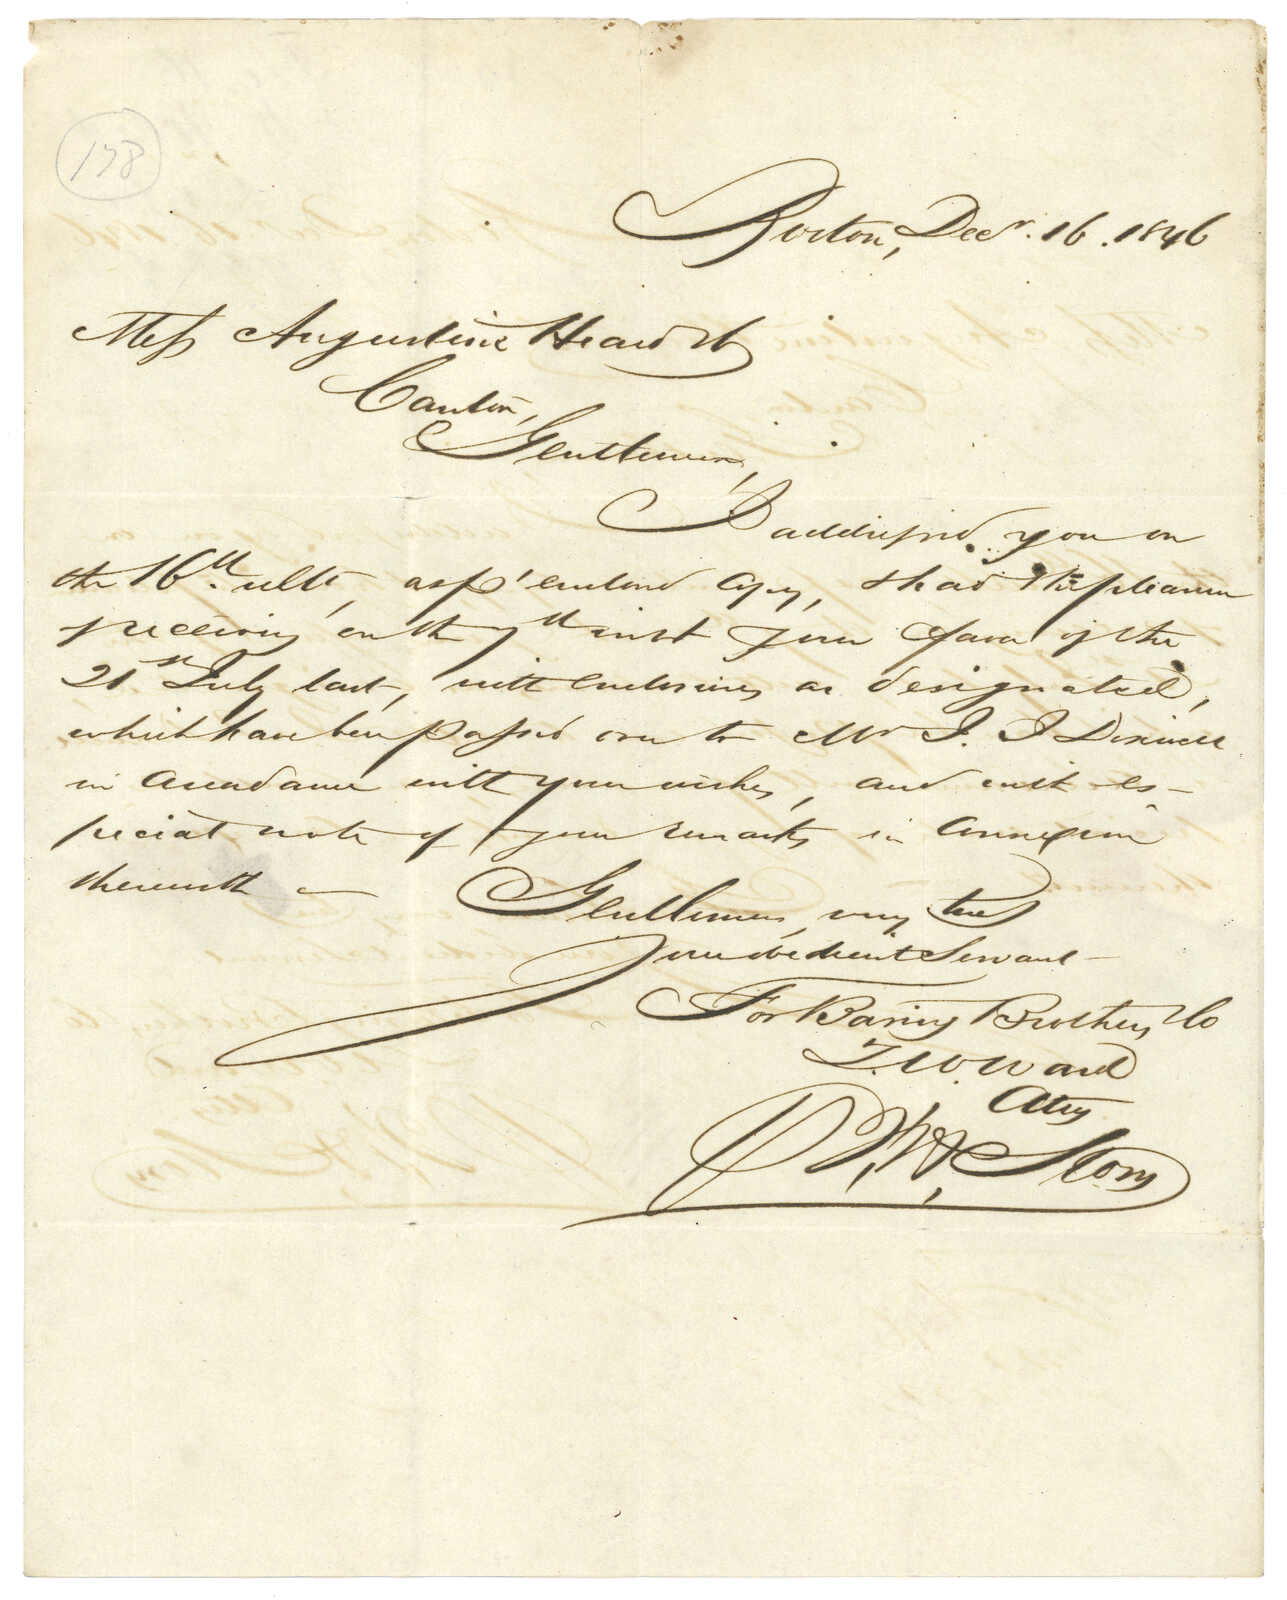 178
Boston, Decr. 16. 1846
Mess Augustine Heard & Co
Canton,
Gentlemen,
I addressed you on
the 16th. ulto, as pr enclosed Copy, & had the pleasure
receiving on the 7th inst your favor of the
21st July last, with enclosures as designated,
which have been passed over to Mr J. J Dixwell
in accordance with your wishes, and with es-
pecial note of your remarks in connexion
therewith —
Gentlemen, very truly
Your obedient Servant —
For Baring Brothers & Co
T. W. Ward
Atty
P W, H, Story